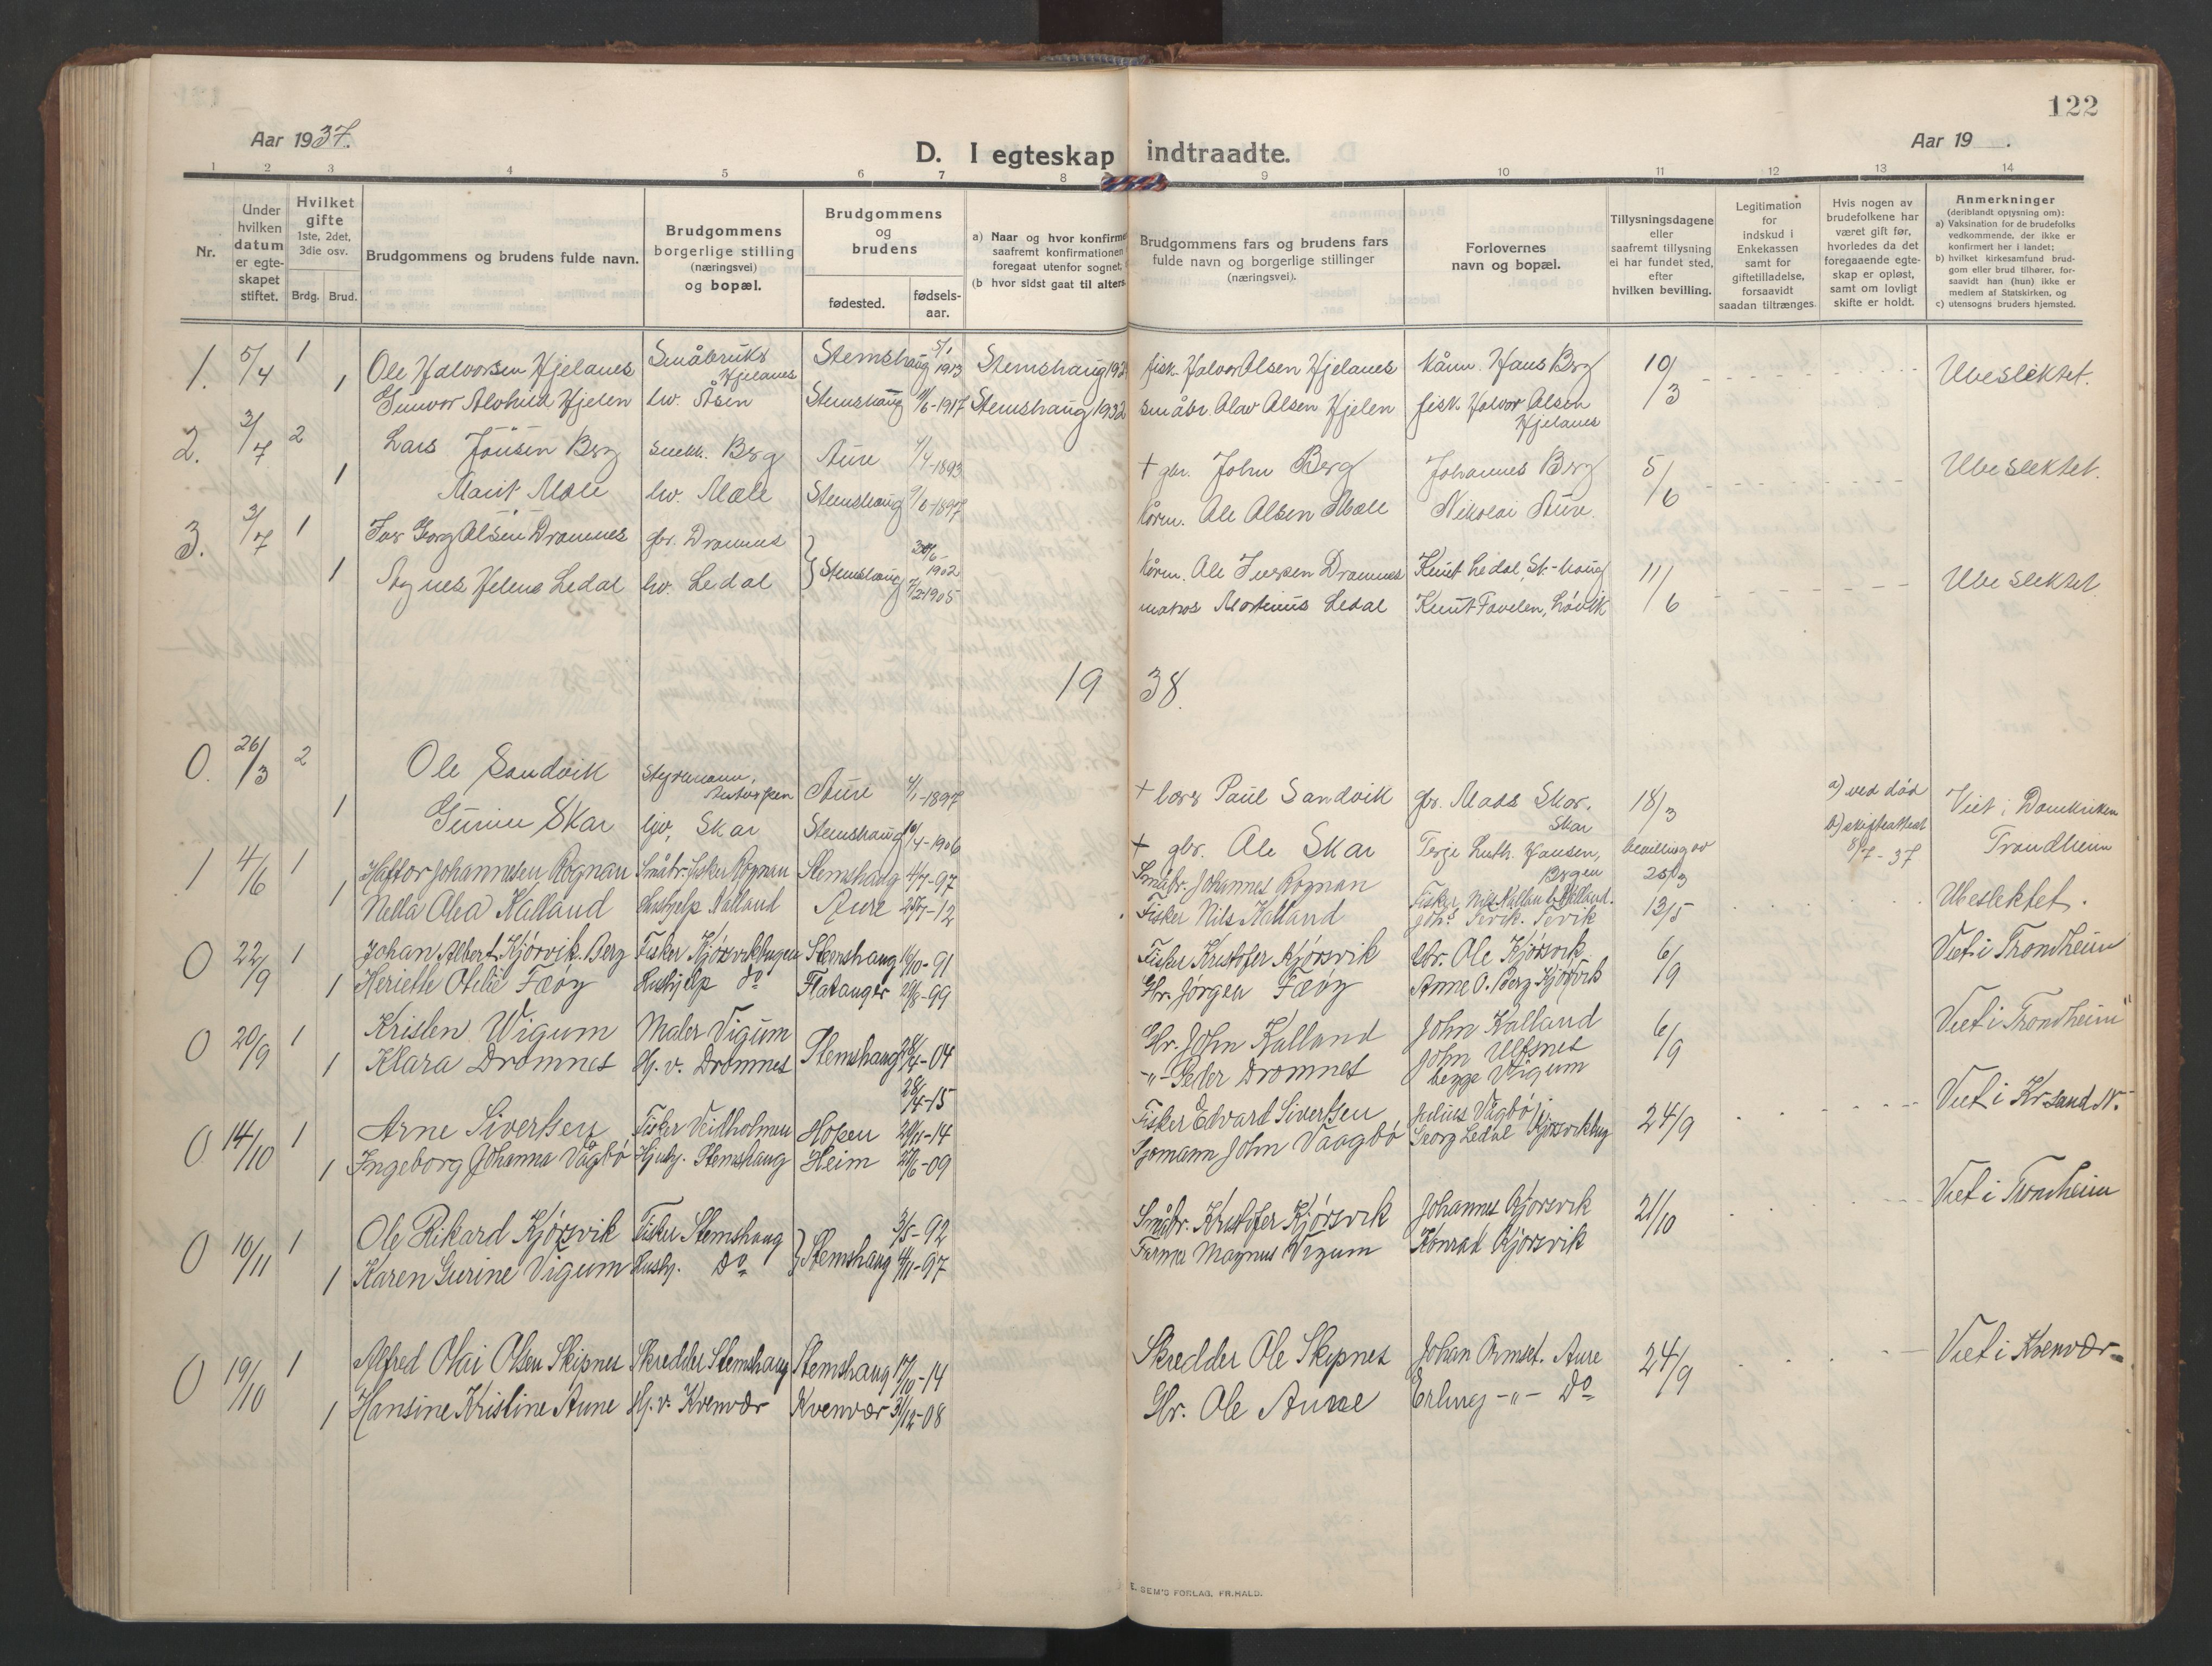 122
Aar 1937.
D. I egteskap indtraadte.
Aar 19 .
1 2 3 4 5 6 7 8 9 10 11 12 13 14
Nr.
Under hvilken datum er egteskapet stiftet.
Hvilket gifte 1ste, 2det, 3die osv.
Brdg. Brud.
Brudgommens og brudens fulde navn.
Brudgommens borgerlige stilling (næringsvei) og bopæl.
Brudgommens og brudens
fødested.
fødsels-aar.
a) Naar og hvor konfirme
saafremt konfirmationen
foregaat utenfor sognet,
(b hvor sidst gaat til alters
Brudgommens fars og brudens fars
fulde navn og borgerlige stillinger
(næringsvei).
Forlovernes
navn og bopæl.
Tillysningsdagene
eller
saafremt tillysning
ei har fundet sted,
efter
hvilken bevilling.
Legitimation
for
indskud i
Enkekassen
samt for
giftetilladelse,
forsaavidt
saadan tiltrænges.
Hvis nogen av
brudefolkene har
været gift før,
hvorledes da det
foregaaende egte-
skap er opløst,
samt om lovligt
skifte er holdt.
Anmerkninger
(deriblandt opfysning om):
a) Vaksination for de brudefolks
vedkommende, der ikke er
konfirmert her i landet;
b) hvilket kirkesamfund brud-
gom eller brud tilhører, for-
saavidt han (hun) ikke er
medlem af Statskirken, og
c) utensogns bruders hjemsted.
1. 5/4 1 Ole Halvorsen Hjelanes Småbruks Hjelanes Stemshaug 5/1 1913 Stemshaug 192 fisk. Halvor Olsen Hjelanes Hans Berg 10/3 Ubeslektet.
1 Gunvor Alvhild Hjelen hv. Åsen Stemshaug 1917 Stemshaug 1932 småbr. Olav Olsen Hjelen fisk. Halvor Olsen Hjelanes
2. 3/7 2 Lars Jonsen Berg snekk. Berg Aure 1/4-1893 + gbr. John Berg Johannes Berg 5/6 Ubeslektet.
1 Marit Mæle hv. Mæle Stemshaug 9/6-1897 Ole Olsen Mæle Nikolai Aure.
3. 3/7 1 Iver Georg Olsen Dromnes gbr. Dromnes Stemshaug 30/6-1902 Ole Iversen Dromnes Knut Ledal, St.-haug 11/6 Ubeslektet
1 Agnes Helene Ledal hv. Ledal 7/2-1905 Martinus Ledal Knut Tovelen, Løvik
1938.
0. 26/3 2 Ole Sandvik Styrmann, Aure 4/1-1897 + lærer Paul Sandvik gbr. Mads Skar. Skar 18/3 a) ved død Viet i Domkirken
1 Skar hjv. Skar Stemshaug 10/4-1906 + gbr. Ole Skar Terje Luth. Hansen, Bergen bevilling av 25/3 b) skifteattest 8/7-37 Trondheim
1 4/6 1 Haftor Johannesen Rognan Småbr.-fisker Rognan Stemshaug 4/7-97 Småbr. Johannes Rognan Fisker Nils Kalland, Kalland. 13/5 Ubeslektet.
1 Nella Olea Kalland Hushjelp Kalland Aure 25/7-12 Fisker Nils Kalland Johs Tevik. Tevik
0 22/9 1 Johan Albert Kjørsvik Berg Fisker Kjørsvikbugen Stemshaug 16/10-91 Fisker Kristofer Kjørsvik Gbr. Ole Kjørsvik 6/9 Viet i Trondheim
1 Heriette Otelie Fæøy Hushjelp do Flatanger 29/8-99 Gbr. Jørgen Fæøy Anne O. Berg Kjørsvik
0 20/9 1 Kristen Wigum Maler Vigum Stemshaug 28/4-04 Gbr. John Kalland John Kalland 6/9 Viet i Trondheim
1 Klara Dromnes Hj. v. Dromnes 28/4-15 -"- Peder Dromnes John Ulfsnes begge Vigum
0 14/10 1 Arne Sivertsen Fisker Veidholmen Hopen 20/11-14 Fisker Edvart Sivertsen Julius Vågbø 24/9 Viet i Kr.sand N.
1 Ingeborg Johanna Vågbø Hjelp. Stemshaug Heim 28/6-09 Sjømann John Vaagbø Georg Ledal Kjørsvikbug
0 16/11 1 Ole Rikard Kjørsvik Fisker Stemshaug Stemshaug 3/5-92 Småbr. Kristofer Kjørsvik Johannes Kjørsvik 21/10 Viet i Trondheim
1 Karen Gurine Vigum Hushj. do 14/11-97 Farmer Magnus Vigum Konrad Kjørsvik
0 19/10 1 Alfred Olai Olsen Skipnes Skredder Stemshaug Stemshaug 17/10-14 Skredder Ole Skipnes Johan Ormset. Aure 24/9 Viet i Kvenvær
1 Hansine Kristine Aune Hj. v. Kvenvær Kvenvær 31/12-08 Gbr. Ole Aune Erling -"- do
E. SEM'S FORLAG, FR.HALD.